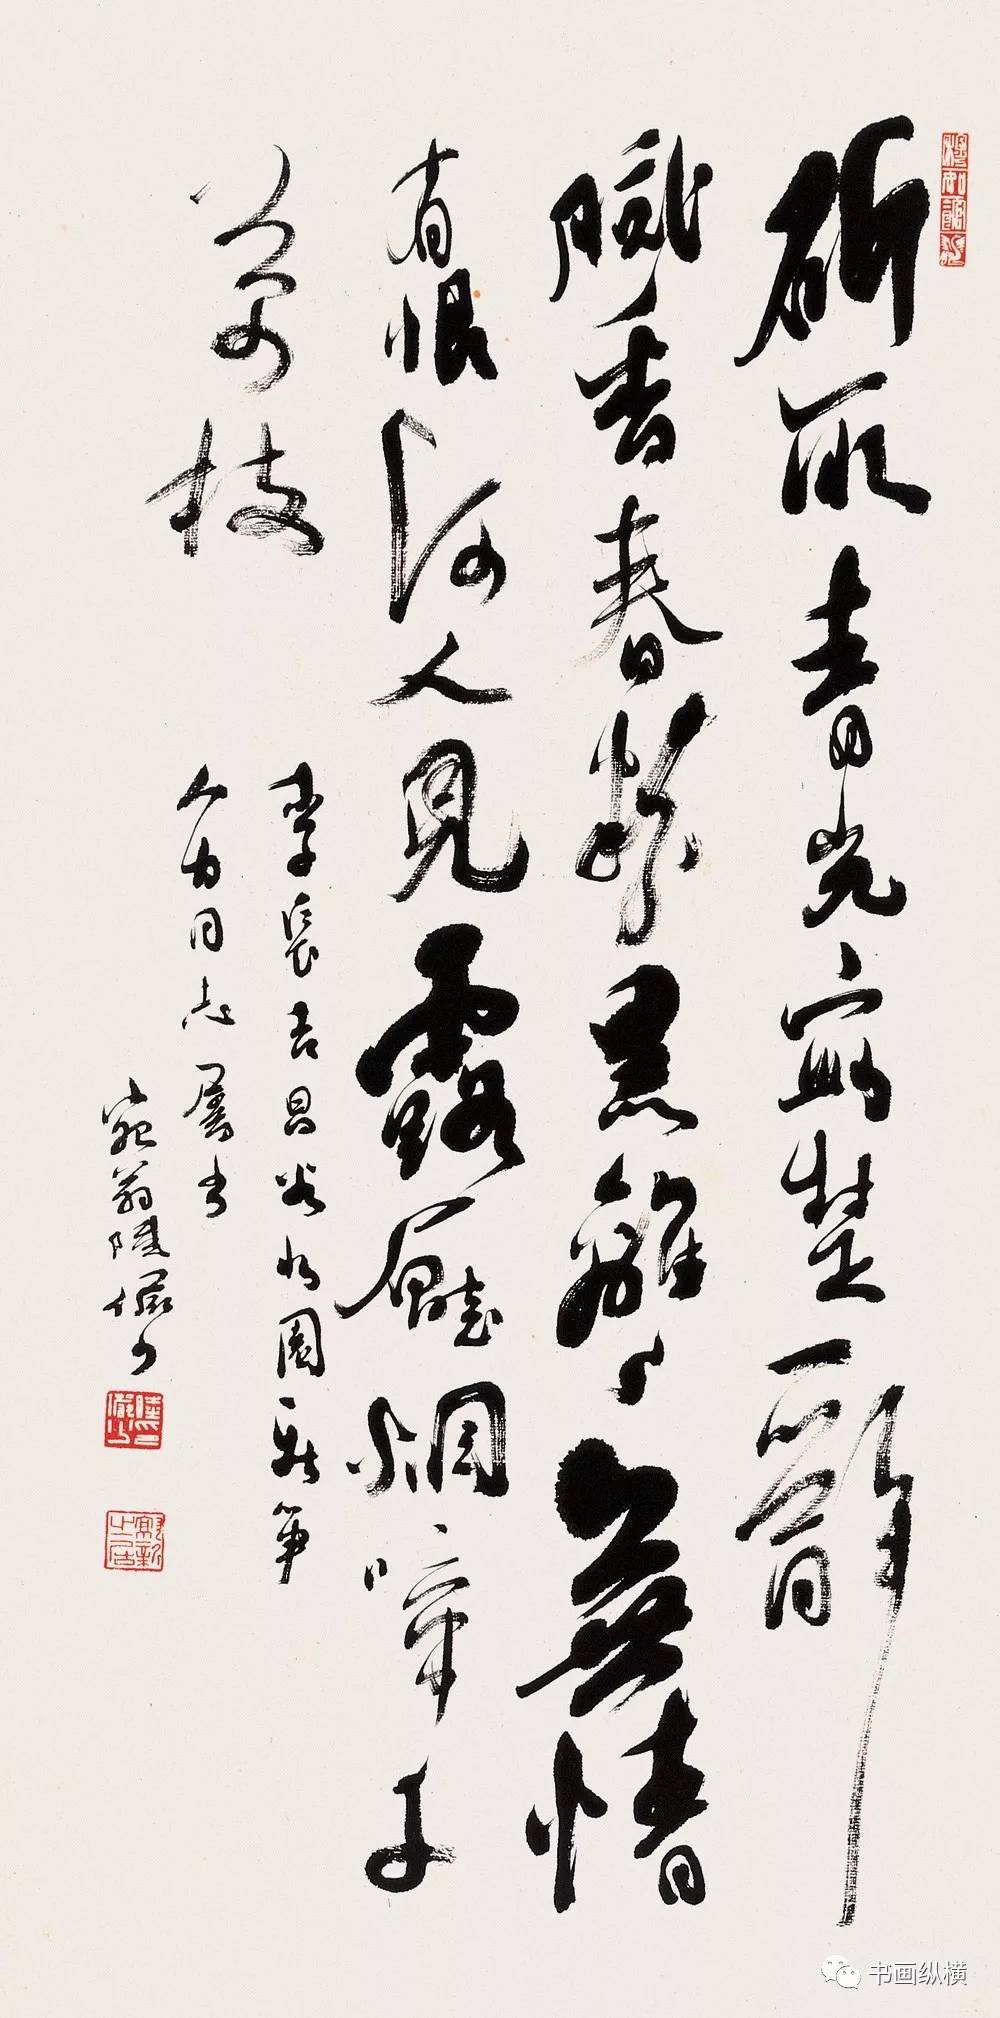 斫取青光寫楚辭
膩香春粉黑離〻無情
有恨何人見露壓烟啼千
萬枝
李長吉昌谷北園新筍
人力同志屬書
宛翁陸儼少
书画纵横